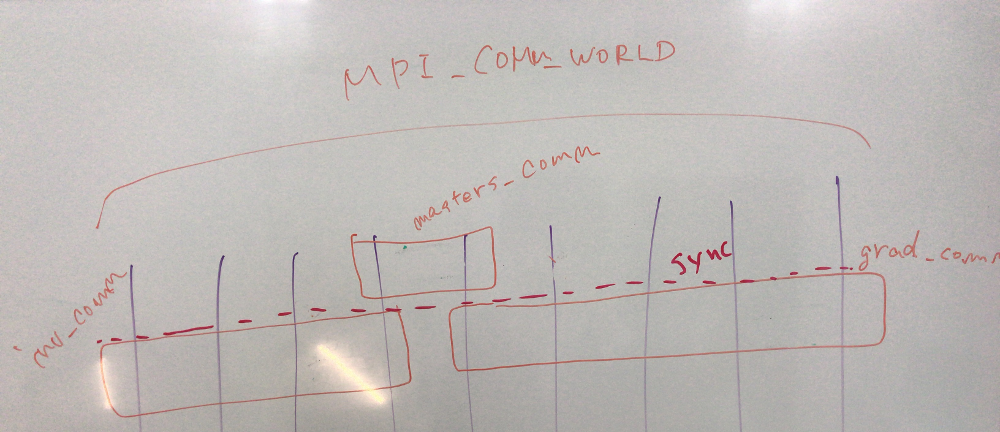 MPI_COMM_WORLD
masters_comm
sync
grad_comm
inv_comm